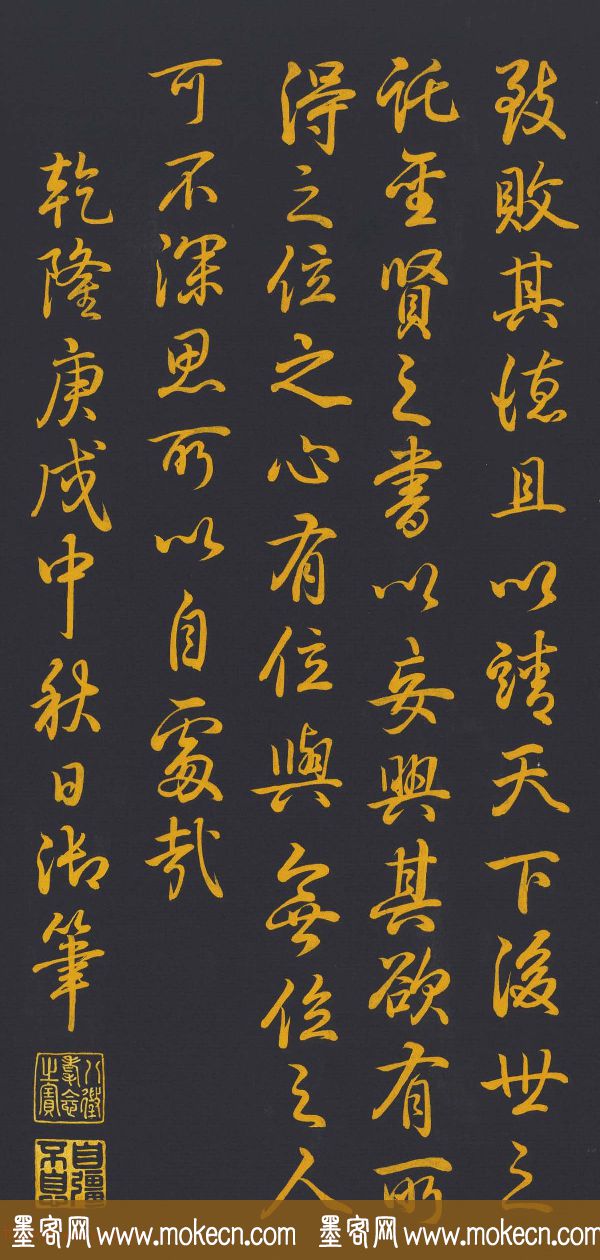 致敗其德且以請天下後世之
託聖賢之書以妄興其欲有所
得之位之心有位與無位之人
可不深思所以自處哉
乾隆庚戌中秋日御筆
八徵耄念之寶
自彊不息
墨客网 www.mokecn.com 墨客网 www.mokecn.com